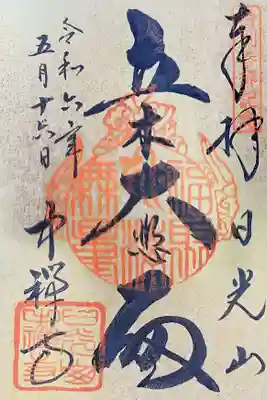 奉拝
日光山
立木大悲殿
中禅寺
令和六年
五月十六日